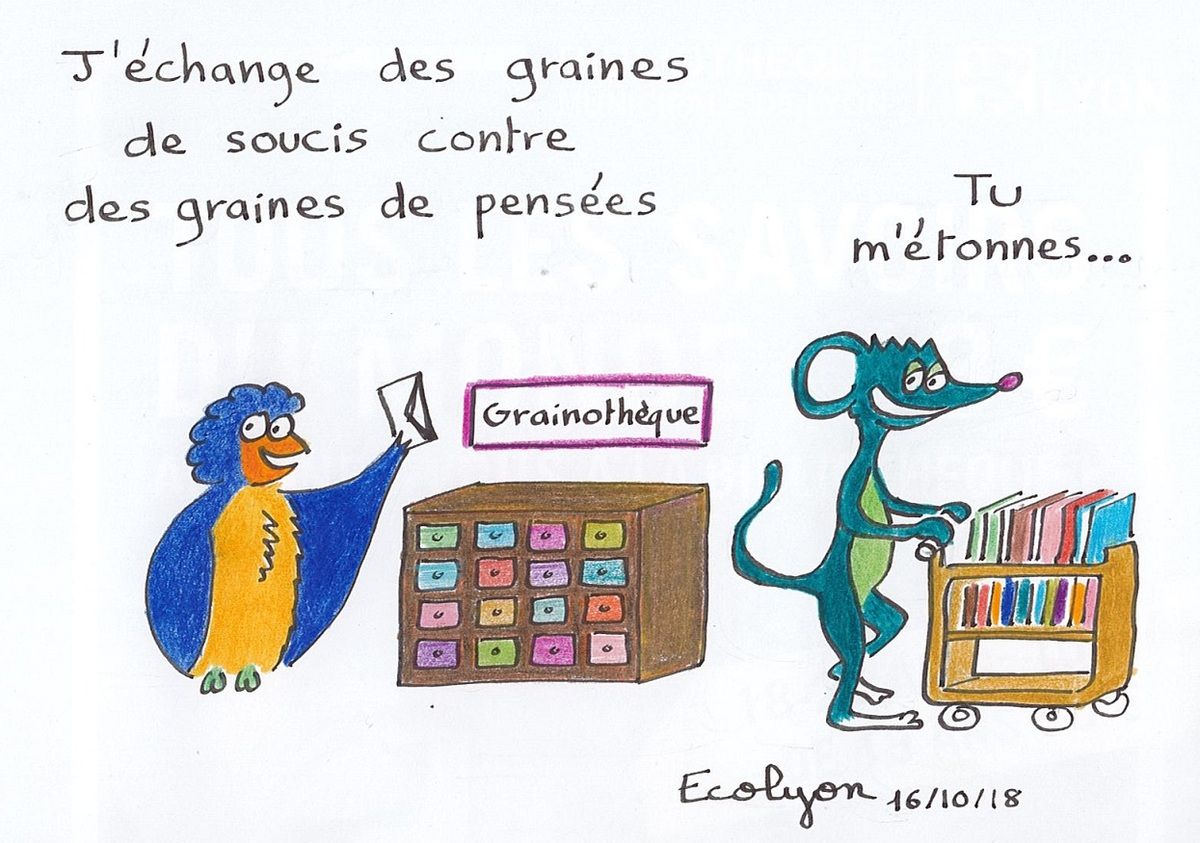 J'échange des graines
de soucis contre
des graines de pensées
Tu
m'étonnes...
Grainothèque
Ecolyon 16/10/18